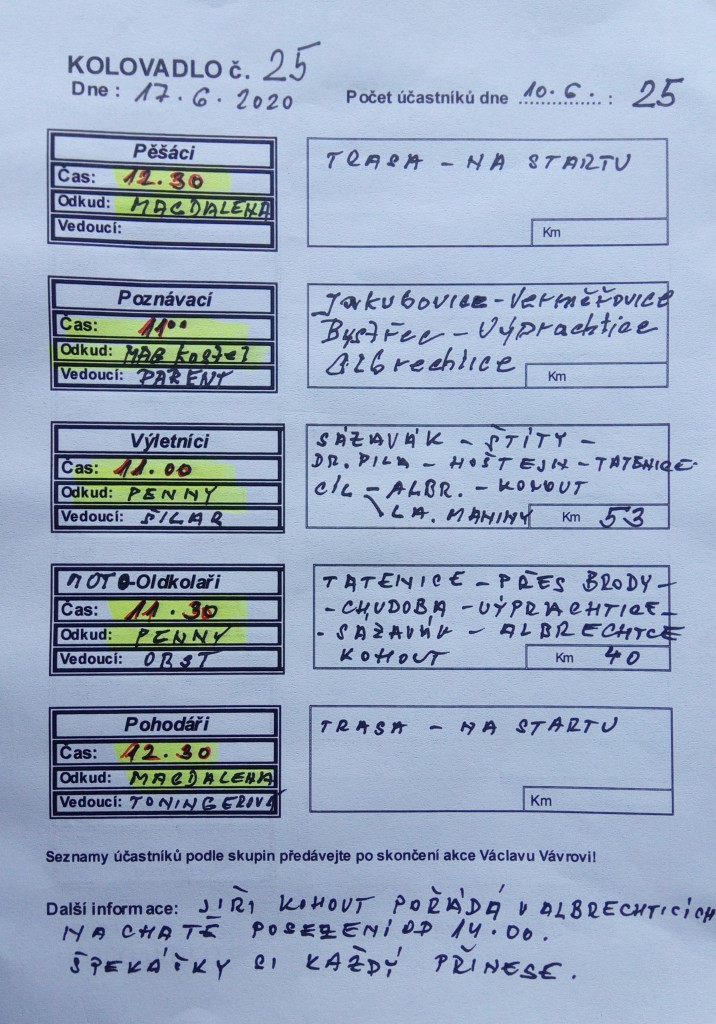 KOLOVADLO č. 25
Dne : 17.6.2020
Počet účastníků dne 10.6. : 25
Pěšáci
Čas: 12.30
Odkud: MAGDALENA
Vedoucí:
TRASA - NA STARTU
Km
Poznávací
Čas: 11⁰⁰
Odkud: MAB Kostel
Vedoucí: PAŘENT
Jakubovice - Verměřovice
Bystřec - Výprachtice
Albrechtice
Km
Výletníci
Čas: 11.00
Odkud: PENNY
Vedoucí: ŠILAR
SÁZAVÁK - ŠTÍTY -
DR. PILA - HOŠTEJN - TATENICE
CÍL - ALBR. - KOHOUT
LA. MANINY
Km 53
MOTO-Oldkolaři
Čas: 11.30
Odkud: PENNY
Vedoucí: ORST
TATENICE - PŘES BRODY -
- CHUDOBA - VÝPRACHTICE -
- SÁZAVÁK - ALBRECHTCE
KOHOUT
Km 40
Pohodáři
Čas: 12.30
Odkud: MAGDALENA
Vedoucí: TONINGEROVÁ
TRASA - NA STARTU
Km
Seznamy účastníků podle skupin předávejte po skončení akce Václavu Vávrovi!
Další informace: JIŘI KOHOUT POŘÁDÁ V ALBRECHTICÍCH
NA CHATĚ POSEZENÍ OD 14.00.
ŠPEKÁČKY SI KAŽDÝ PŘINESE.